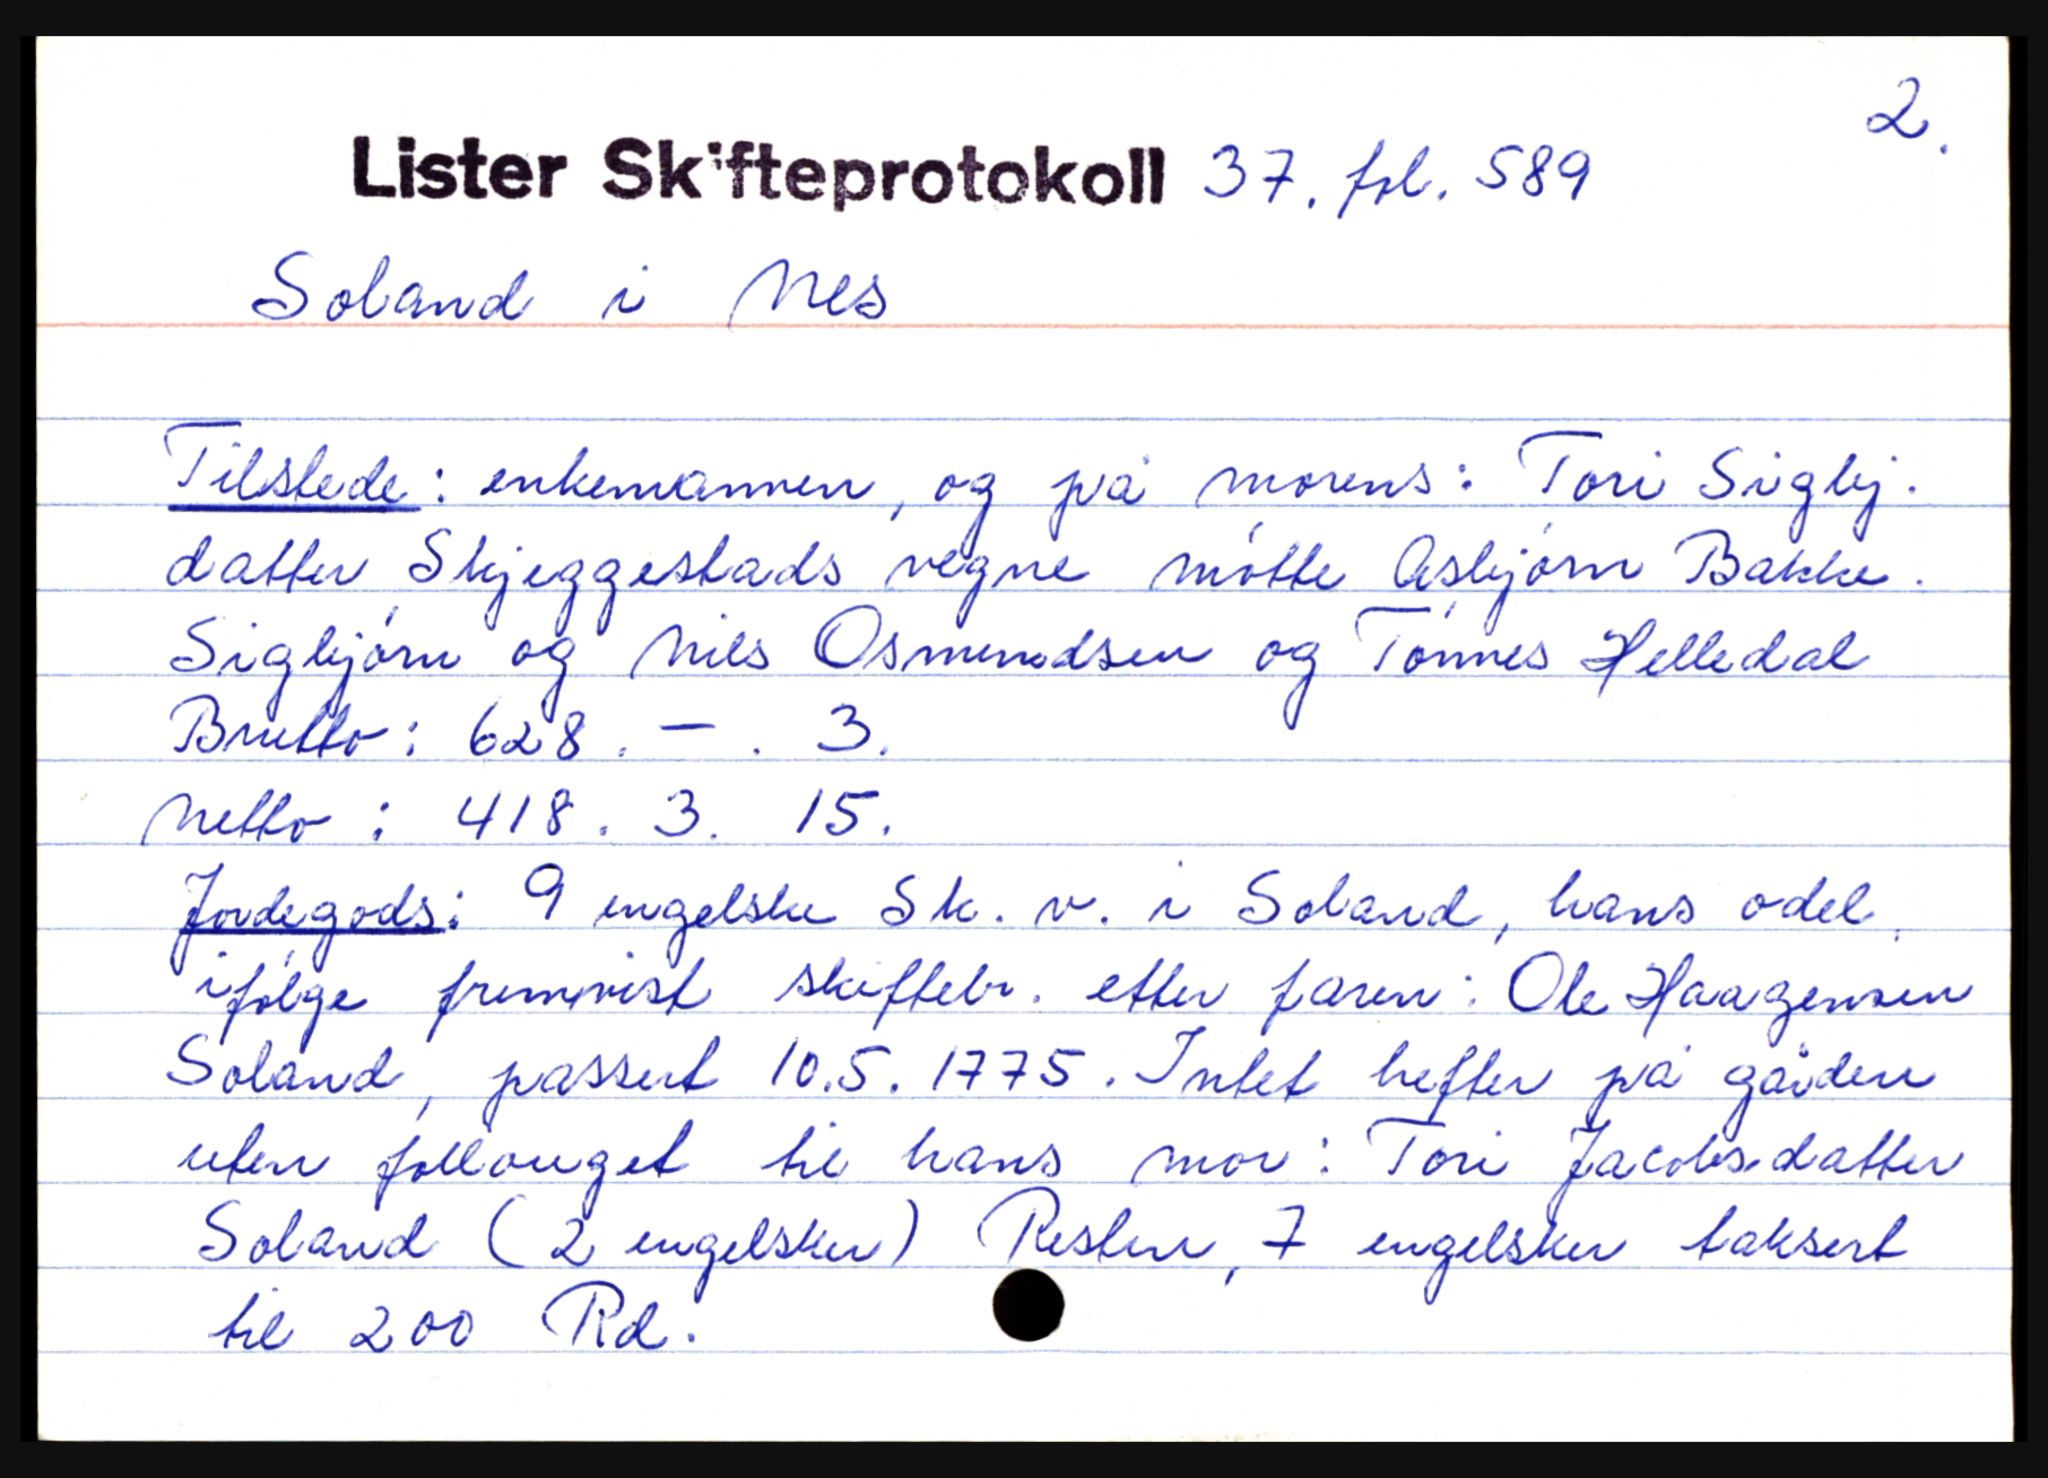 2.
Lister Skifteprotokoll 37. fol. 589
Soland i Nes
Tilstede: enkemannen, og på morens: Tori Sigbj.
datter Skjeggestads vegne møtte Asbjørn Bakke.
Sigbjørn og Nils Osmundsen og Tønnes Helledal
Brutto: 628. – . 3.
Netto: 418. 3. 15.
Jordegods: 9 engelske Sk. v. i Soland, hans odel,
ifølge fremvist skiftebr. etter faren: Ole Haagensen
Soland, passert 10.5.1775. Intet hefter på gården
uten follouget til hans mor: Tori Jacobsdatter
Soland (2 engelsker) Resten, 7 engelsker taksert
til 200 Rd.